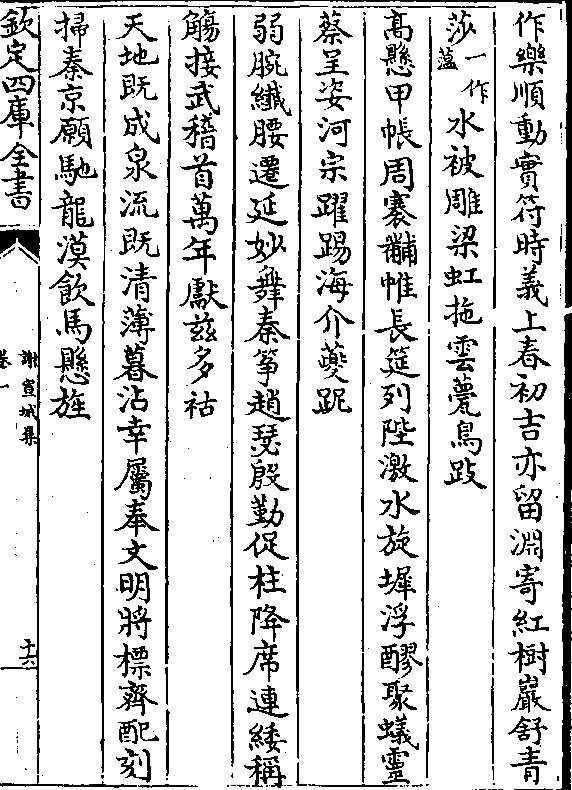 作樂順動實符時義上春初吉亦留淵寄紅樹巖舒青
莎一作薀水被雕梁虹拖雲甍鳥跂
高懸甲帳周褰黼帷長筵列陛激水旋墀浮醪聚蟻靈
蔡呈姿河宗躍踢海介夔跜
弱腕纖腰遷延妙舞秦箏趙瑟殷勤促柱降席連緌稱
觴接武稽首萬年獻兹多祜
天地既成泉流既清薄暮沾幸屬奉文明將標齊配刻
掃秦京願馳龍漠飲馬懸旌
欽定四庫全書
謝宣城集
卷一
十六